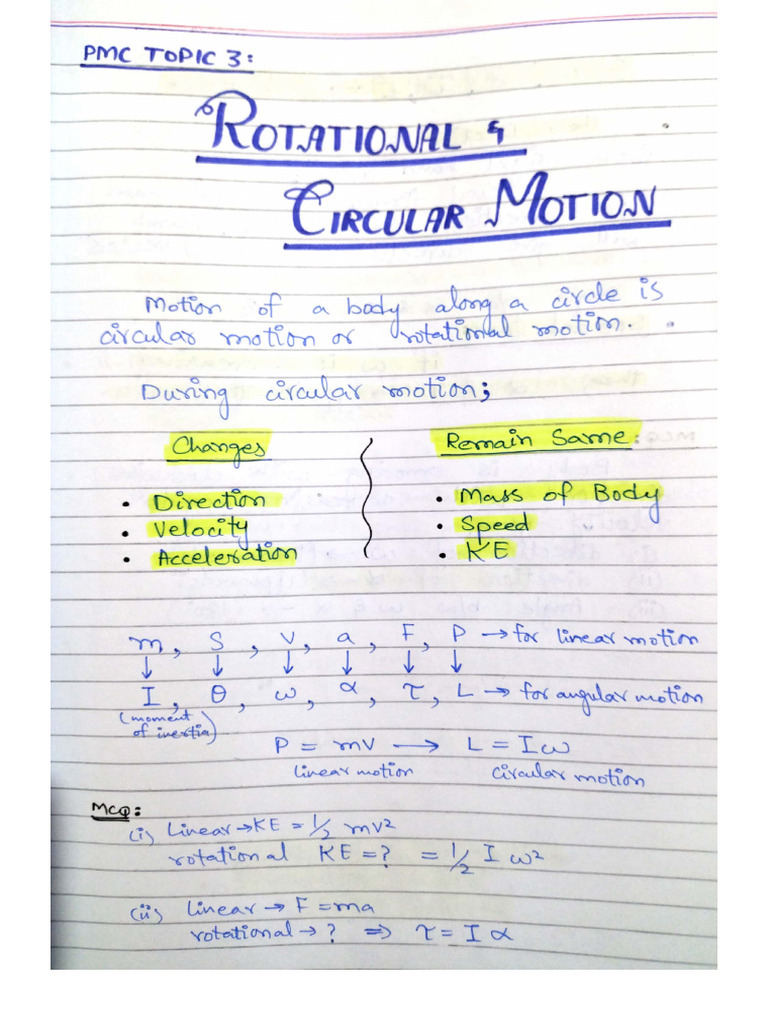 PMC TOPIC 3:
ROTATIONAL &
CIRCULAR MOTION
Motion of a body along a circle is
circular motion or rotational motion.
During circular motion;
Changes
• Direction
• Velocity
• Acceleration
Remain Same:
• Mass of Body
• Speed
• KE
m, S, V, a, F, P → for linear motion
↓ ↓ ↓ ↓ ↓ ↓
I, θ, ω, α, τ, L → for angular motion
(moment
of inertia)
P = mV → L = Iω
linear motion circular motion
MCQ:
(i) Linear → KE = 1/2 mv²
rotational KE = ? = 1/2 I ω²
(ii) linear → F = ma
rotational → ? ⇒ τ = I α